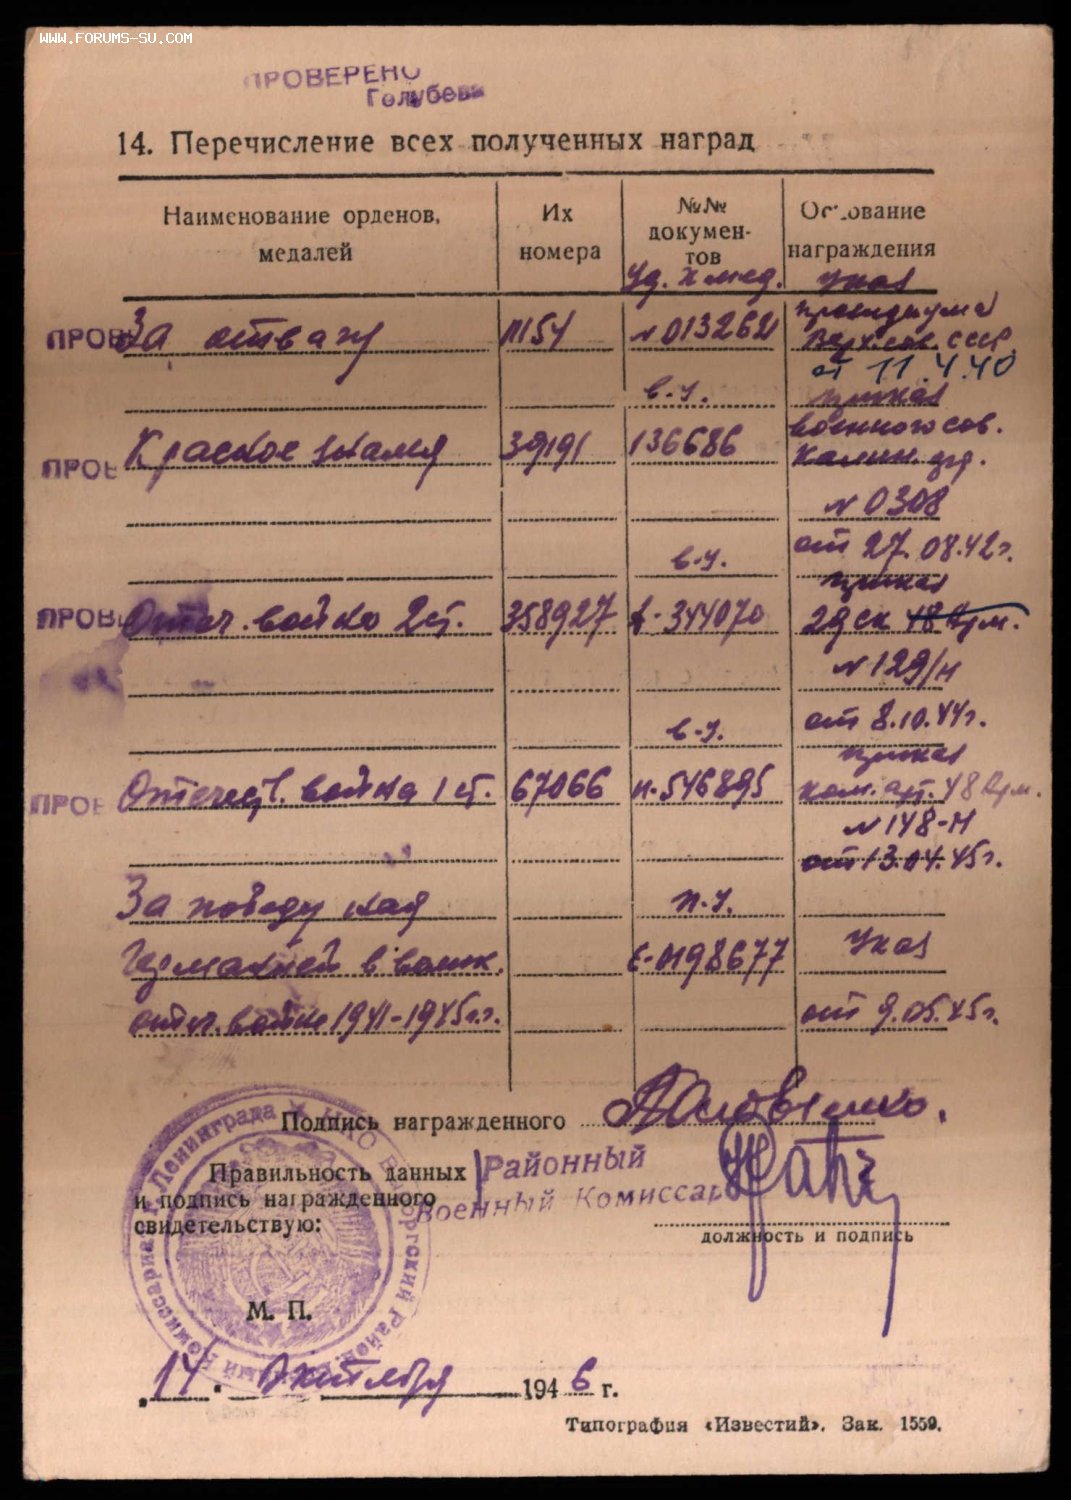 WWW.FORUMS-SU.COM
ПРОВЕРЕНО
Голубева
14. Перечисление всех полученных наград
Наименование орденов, медалей
Их номера
№№ документов
Основание награждения
Уд. к мед. Указ
Президиума
ПРОВ За отвагу 11154 N 013262 Верх. сов. СССР
от 11.4.40
в.у. приказ
военного сов.
ПРОВ Красное знамя 39191 136686 Калин.
N 0308
от 27.08.42г.
в.у. приказ
ПРОВ Отеч. война 2 ст. 358927 344070 29 ск 48 Арм.
N 129/н
от 8.10.44г.
в.у. приказ
ПРОВ Отечеств. война 1 ст. 67066 н-546895 ком. арт. 48 Арм.
N 148-н
от 13.04.45г.
За победу над п.у.
Германией в велик. Е-0198677 Указ
отеч. войне 1941-1945г.г. от 9.05.45г.
Подпись награжденного
Правильность данных
и подпись награжденного
свидетельствую:
Районный
Военный Комиссар
должность и подпись
М. П.
НКО Выборгский Районный Военный Комиссариат г. Ленинграда
„14“ октября 1946 г.
Типография «Известий». Зак. 1559.